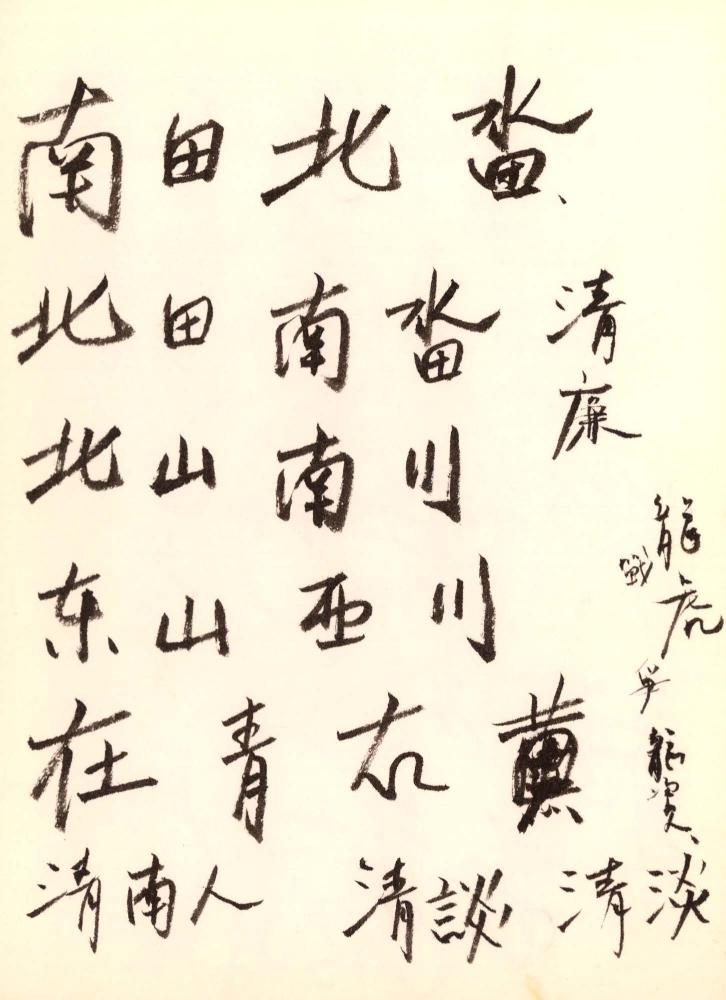 南田北畓
北田南畓
北山南川
东山西川
在青右
清南人 清談 清淡
清廉
龍虎
戰
龍